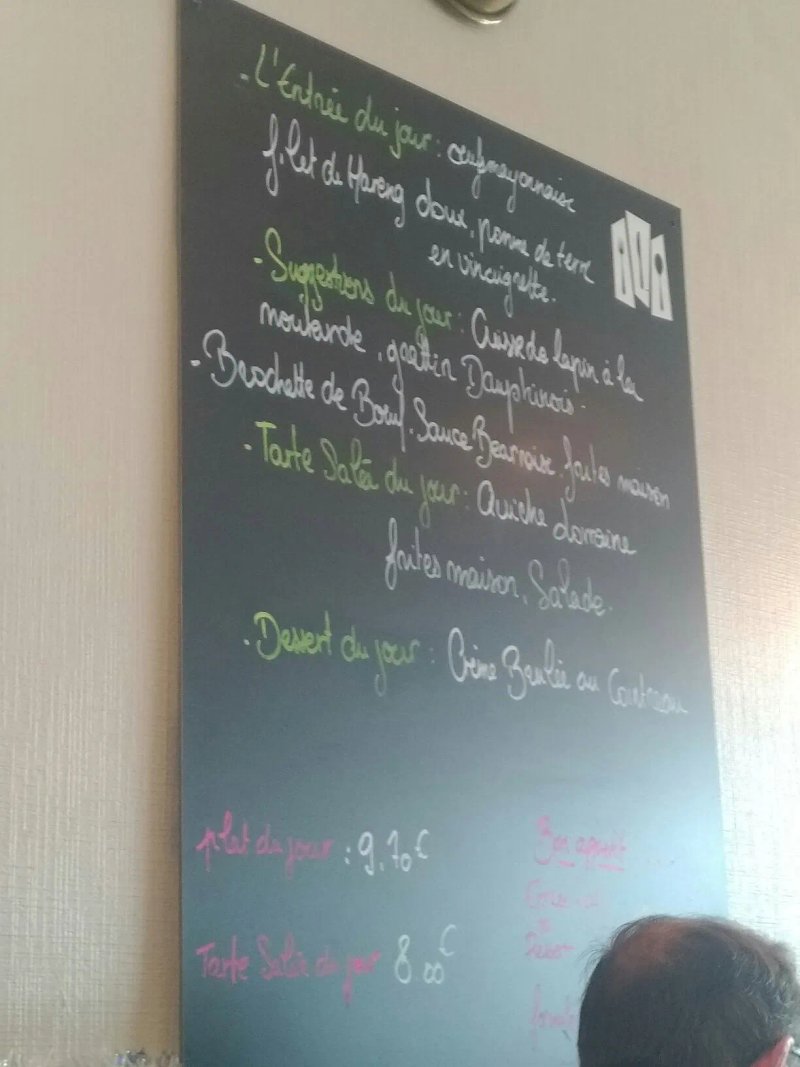 - L'Entrée du jour : œufs mayonnaise
filet de Hareng doux, pomme de terre
en vinaigrette.
- Suggestions du jour : Cuisse de lapin à la
moutarde, gratin Dauphinois.
- Brochette de Bœuf. Sauce Bearnaise, faites maison
- Tarte Salée du jour : Quiche Lorraine
faites maison, Salade.
- Dessert du jour : Crème Brulée au Cointreau
plat du jour : 9.70 €
Bon appétit
Tarte Salée du jour 8.00 €